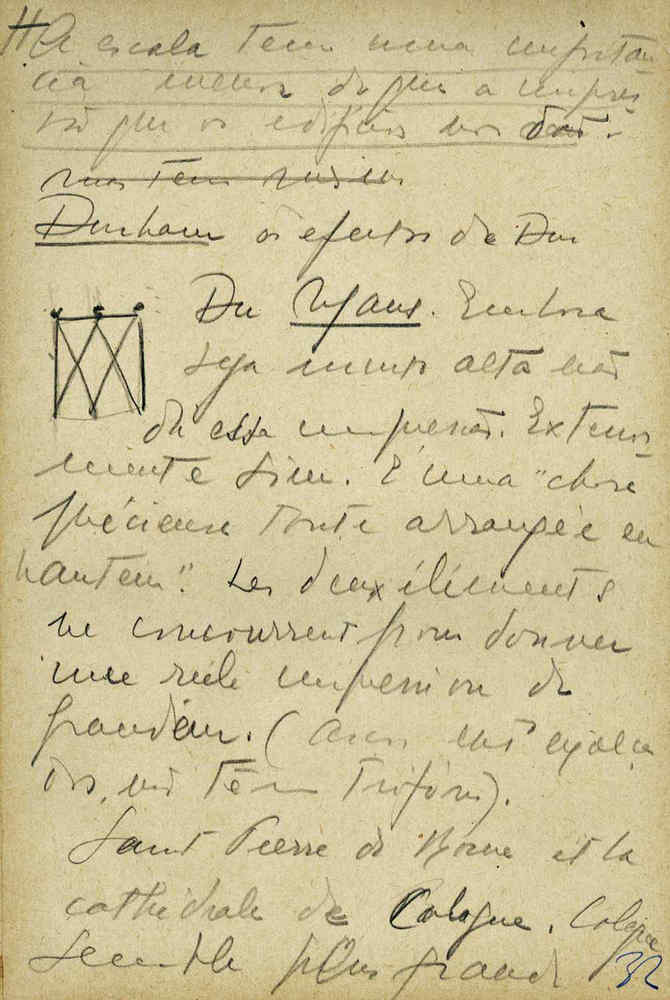 A escala tem uma importân
cia menor do que a impres
são que os edifícios nos dão.
mas tem
Durham os efeitos de Dur
Du Mans. Embora
seja menos alta não
da essa impressão. Exterior
mente sim. É uma "chose
précieuse toute arrangée en
hauteur". Les deux éléments
ne concourrent pour donner
une seule impression de
grandeur. (
não têm trifório).
Saint Pierre de Rome et la
cathédrale de Cologne. Cologne
semble plus grande
32